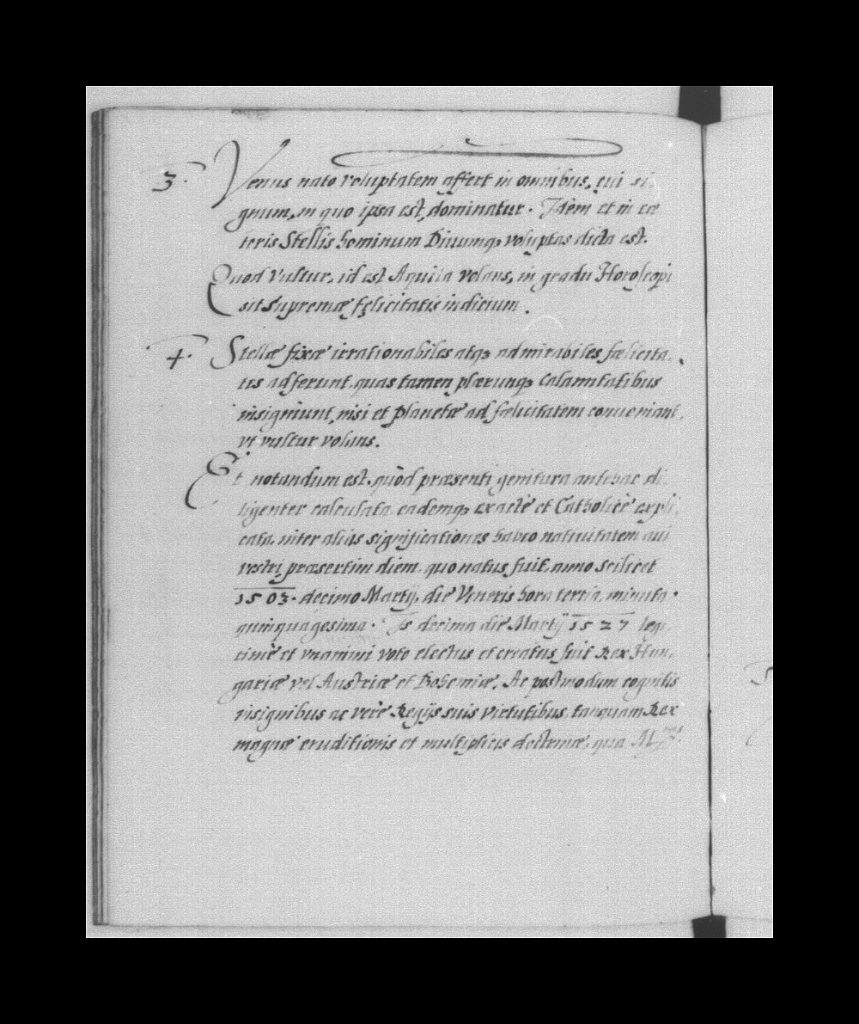 3. Venus nato voluptatem affert in omnibus, qui si
gnum, in quo ipsa est, dominatur. Idem et in cæ
teris Stellis hominum Diuumq₃ voluptas dicta est.
Quod Vultur, id est Aquila volans, in gradu Horoscopi
sit supremæ fęlicitatis indicium.
4. Stellæ fixæ irrationabiles atq₃ admirabiles fælicita
tes adferunt, quas tamen plærunq₃ calamitatibus
insigniunt, nisi et planetæ ad fælicitatem conueniant,
vt vultur volans.
Et notandum est, quòd præsenti genitura antehac di
ligenter calculata eademq₃ exactè et Catholicè expli
cata, inter alias significationes natiuitatem aui
vestri, præsertim diem, quo natus fuit, anno scilicet
1503. decimo Martij, die Veneris hora tertia, minuta
quinquagesima. Is decima die Martij 1527 legi
timè et vnanimi voto electus et creatus fuit Rex Hun,
gariæ vel Austriæ et Bohemiæ. Ac postmodum cognitis
insignibus ac verè Regijs suis virtutibus, tanquam Rex
magnæ eruditionis et multiplicis doctrinæ, qua